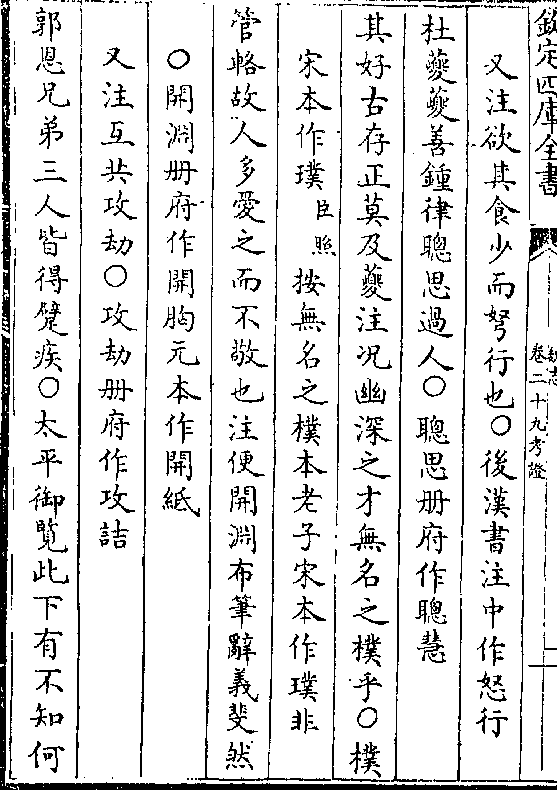 欽定四庫全書
魏志
卷二十九考證
又注欲其食少而弩行也○後漢書注中作怒行
杜夔夔善鍾律聰思過人○聰思册府作聰慧
其好古存正莫及夔注况幽深之才無名之樸乎○樸
宋本作璞臣照按無名之樸本老子宋本作璞非
管輅故人多愛之而不敬也注便開淵布筆辭義斐然
○開淵册府作開胸元本作開紙
又注互共攻劫○攻劫册府作攻詰
郭恩兄弟三人皆得躄疾○太平御覽此下有不知何